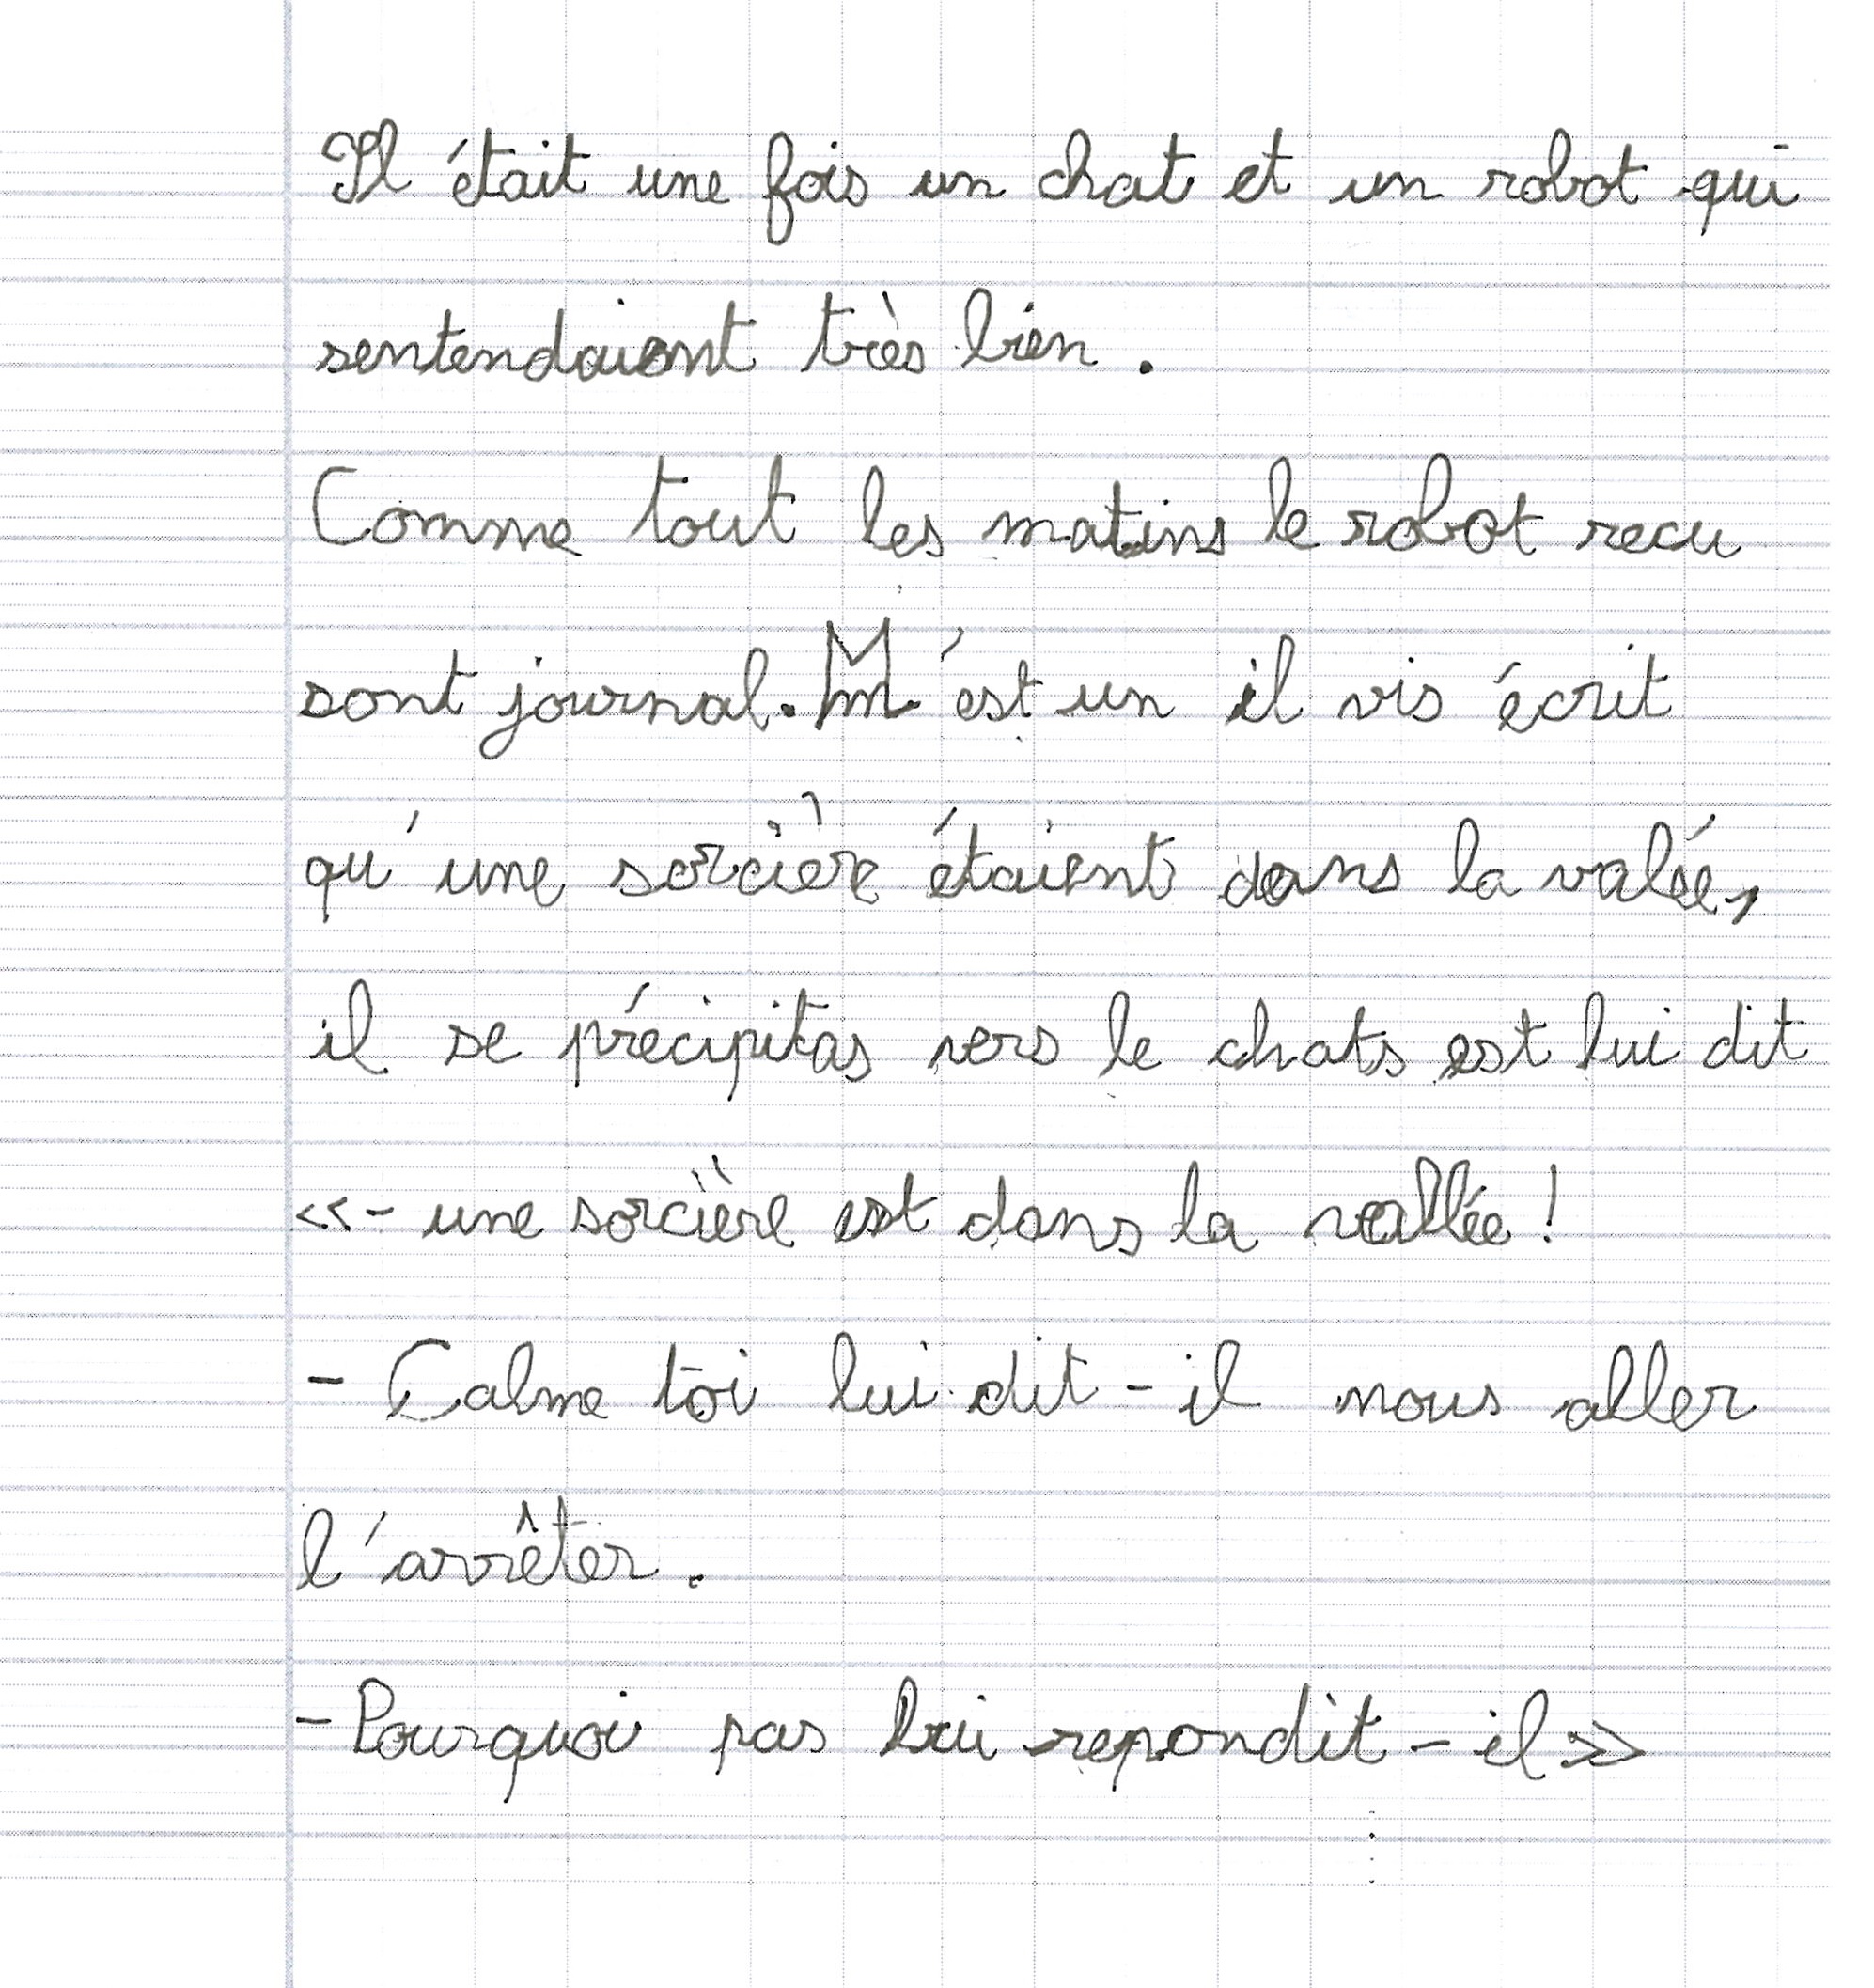 Il était une fois un chat et un robot qui
sentendaiont très bien.
Comme tout les matins le robot recu
sont journal. M'est un il vis écrit
qu'une sorcière étaient dans la valée,
il se précipitas vers le chats est lui dit
<<- une sorcière est dans la vallée !
- Calme toi lui dit-il nous aller
l'arrêter.
- Pourquoi pas lui repondit-il >>